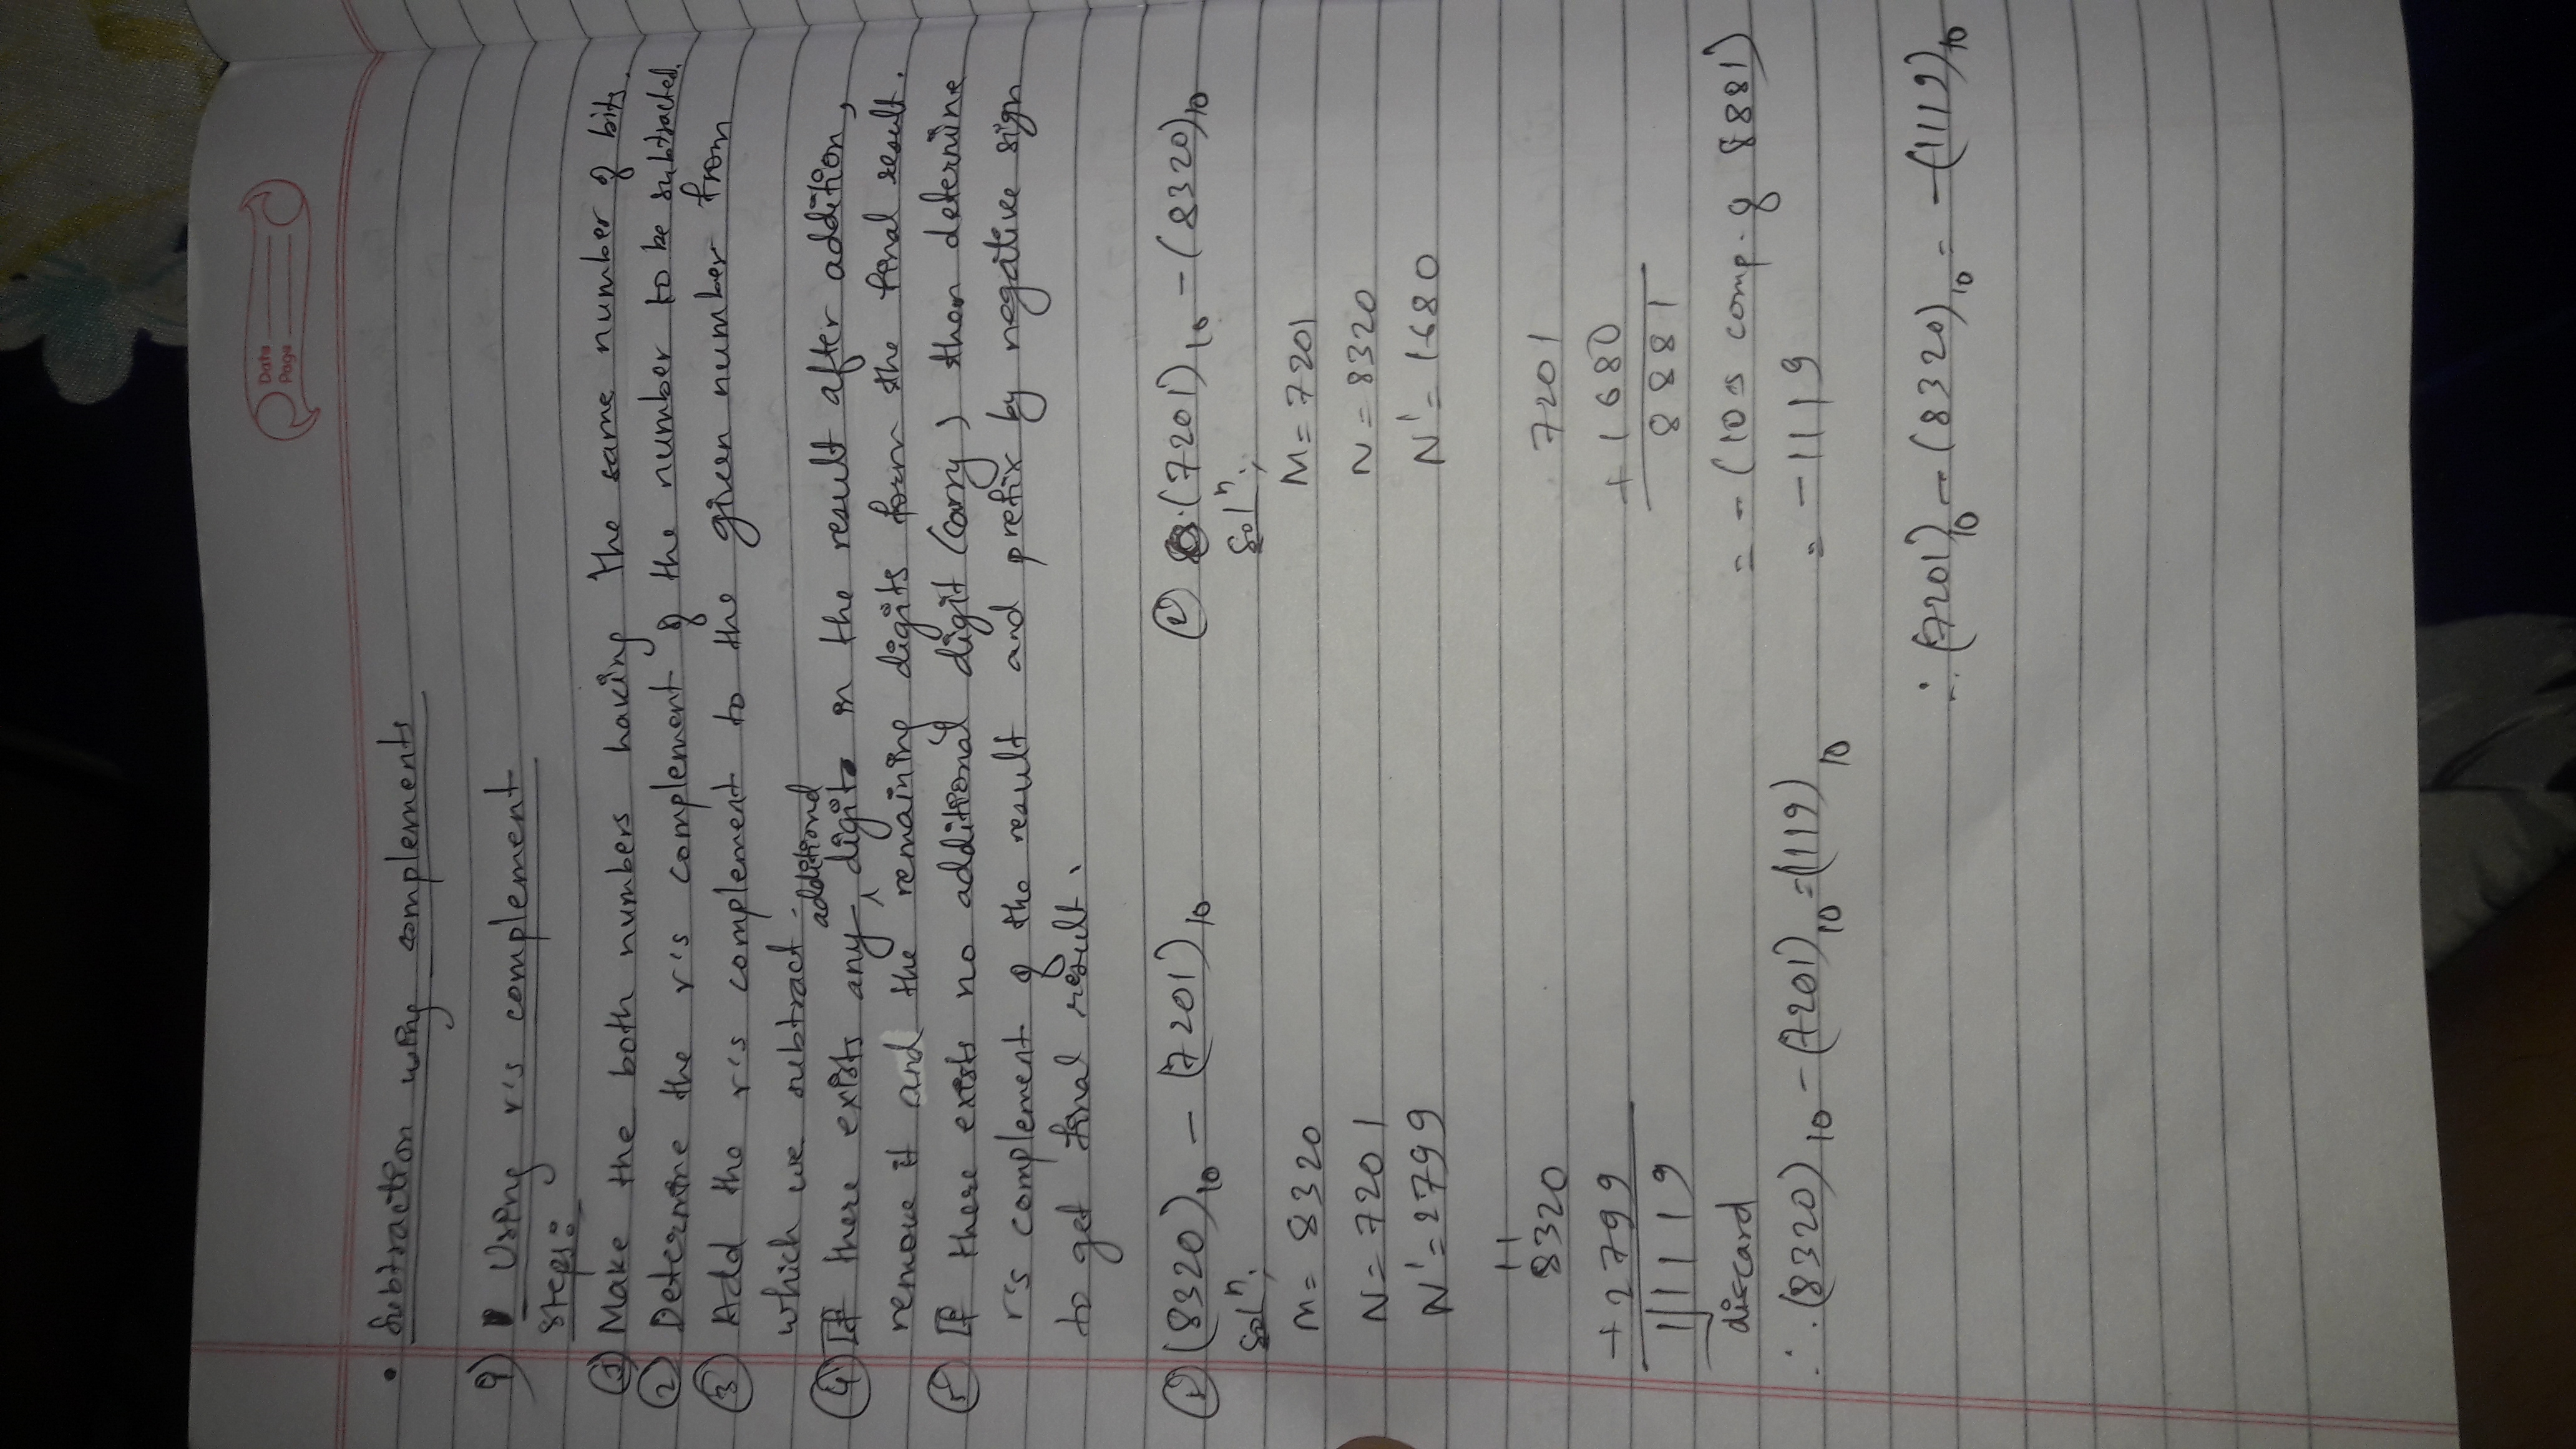 Date
Page
• Subtraction using complements
9) Using r's complement
Steps:
① Make the both numbers having the same number of bits.
② Determine the r's complement of the number to be subtracted.
③ Add the r's complement to the given number from
which we subtract.
additional
④ If there exists any ^ digits in the result after addition,
remove it and the remaining digits form the final result.
⑤ If there exists no additional digit (carry) then determine
r's complement of the result and prefix by negative sign
to get final result.
① (8320)10 - (7201)10
Solⁿ:
M = 8320
N = 7201
N' = 2799
11
8320
+ 2799
11119
discard
∴ (8320)10 - (7201)10 = (1119)10
(7201)10 - (8320)10
Solⁿ:
M = 7201
N = 8320
N' = 1680
7201
+ 1680
8881
= - (10s comp. of 8881)
= - 1119
∴ (7201)10 - (8320)10 = - (1119)10